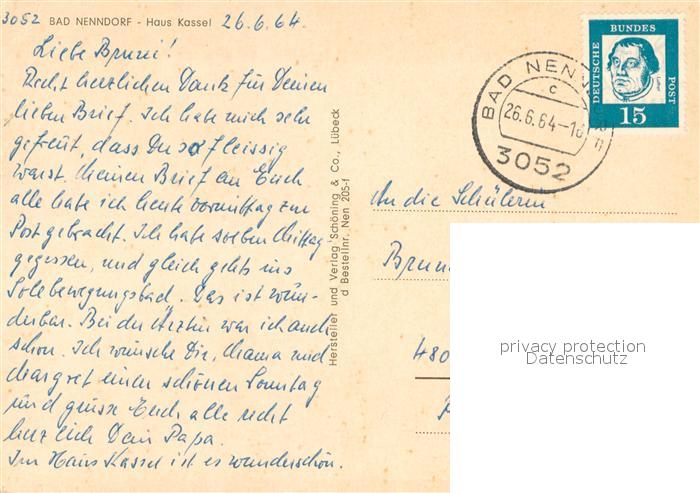 3052 BAD NENNDORF - Haus Kassel 26.6.64.
Liebe Bruni!
Recht herzlichen Dank für Deinen
lieben Brief. Ich habe mich sehr
gefreut, dass Du so fleissig
warst. Meinen Brief an Euch
alle habe ich heute vormittag zur
Post gebracht. Ich habe soeben Mittag
gegessen, und gleich gehts ins
Solebewegungsbad. Das ist wun-
derbar. Bei der Ärztin war ich auch
schon. Ich wünsche Dir, Mama und
Margret einen schönen Sonntag
und grüsse Euch alle recht
herzlich Dein Papa.
Im Haus Kassel ist es wunderschön.
Hersteller und Verlag Schöning & Co., Lübeck
d Bestellnr. Nen 205-f
BAD NENNDORF
c
26.6.64-18
3052
DEUTSCHE
BUNDES
POST
15
An die Schülerin
Brun
480
privacy protection
Datenschutz